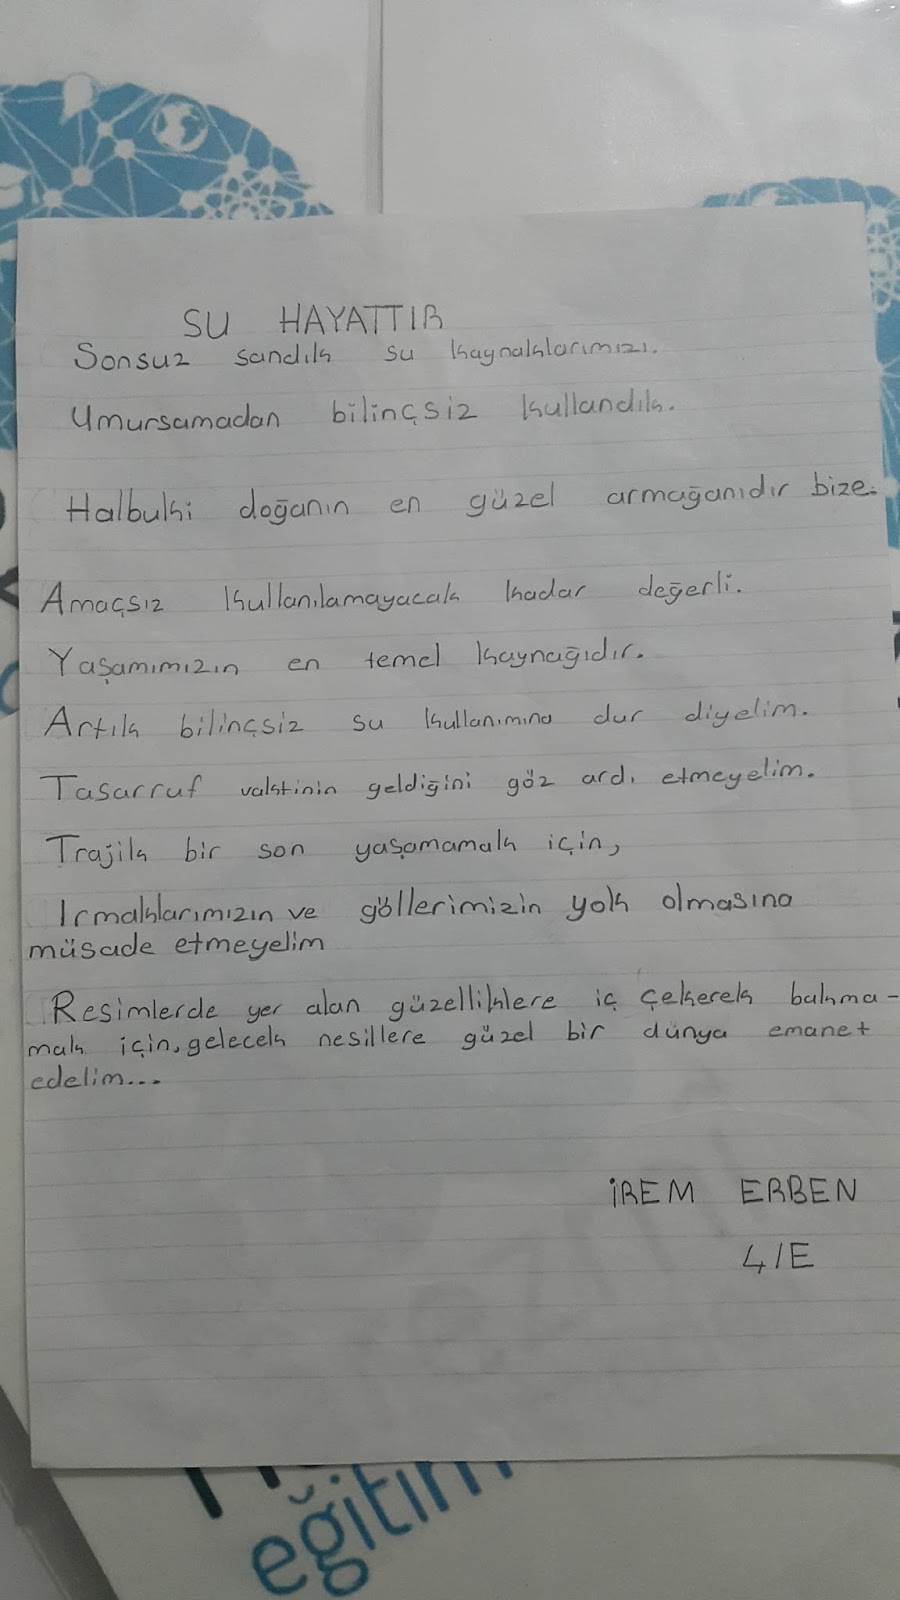 SU HAYATTIR
Sonsuz sandık su kaynaklarımızı.
Umursamadan bilinçsiz kullandık.
Halbuki doğanın en güzel armağanıdır bize.
Amaçsız kullanılamayacak kadar değerli.
Yaşamımızın en temel kaynağıdır.
Artık bilinçsiz su kullanımına dur diyelim.
Tasarruf vaktinin geldiğini göz ardı etmeyelim.
Trajik bir son yaşamamak için,
Irmaklarımızın ve göllerimizin yok olmasına
müsade etmeyelim
Resimlerde yer alan güzelliklere iç çekerek bakma-
mak için, gelecek nesillere güzel bir dünya emanet
edelim...
İREM ERBEN
4/E
eğitim